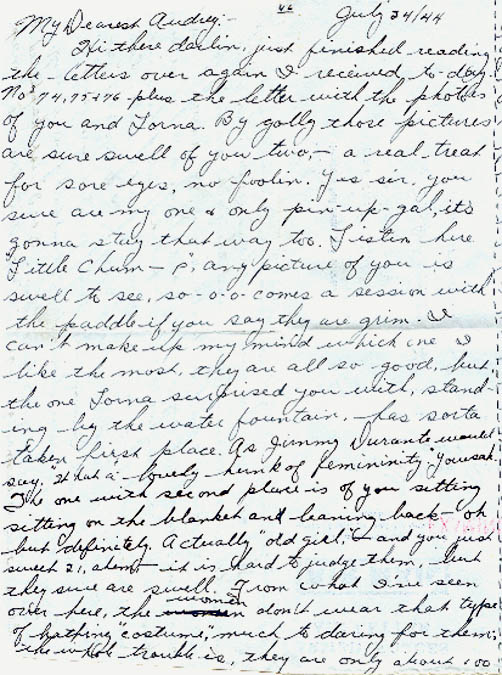 46
July 24/44
My Dearest Audrey:-
Hi there darlin, just finished reading
the letters over again I received to-day
No's 74, 75 & 76 plus the letter with the photos
of you and Lorna. By golly those pictures
are sure swell of you two, - a real treat
for sore eyes, no foolin. Yes sir, you
sure are my one & only pin-up-gal, it's
gonna stay that way too. Listen here
"Little Chum -", any picture of you is
swell to see, so-o-o comes a session with
the paddle if you say they are grim. I
can't make up my mind which one I
like the most, they are all so good, but
the one Lorna surprised you with, stand-
ing by the water fountain, - has sorta
taken first place. As Jimmy Durante would
say, "What a" - lovely hunk of femininity "yousah.
The one with second place is of you sitting
sitting on the blanket and leaning back - oh
but definitely. Actually "old girl" - and you just
sweet 21, ahem - it is hard to judge them, but
they sure are swell. From what I've seen
over here, the women don't wear that type
of bathing "costume", much to daring for them;
the whole trouble is, they are only about 100